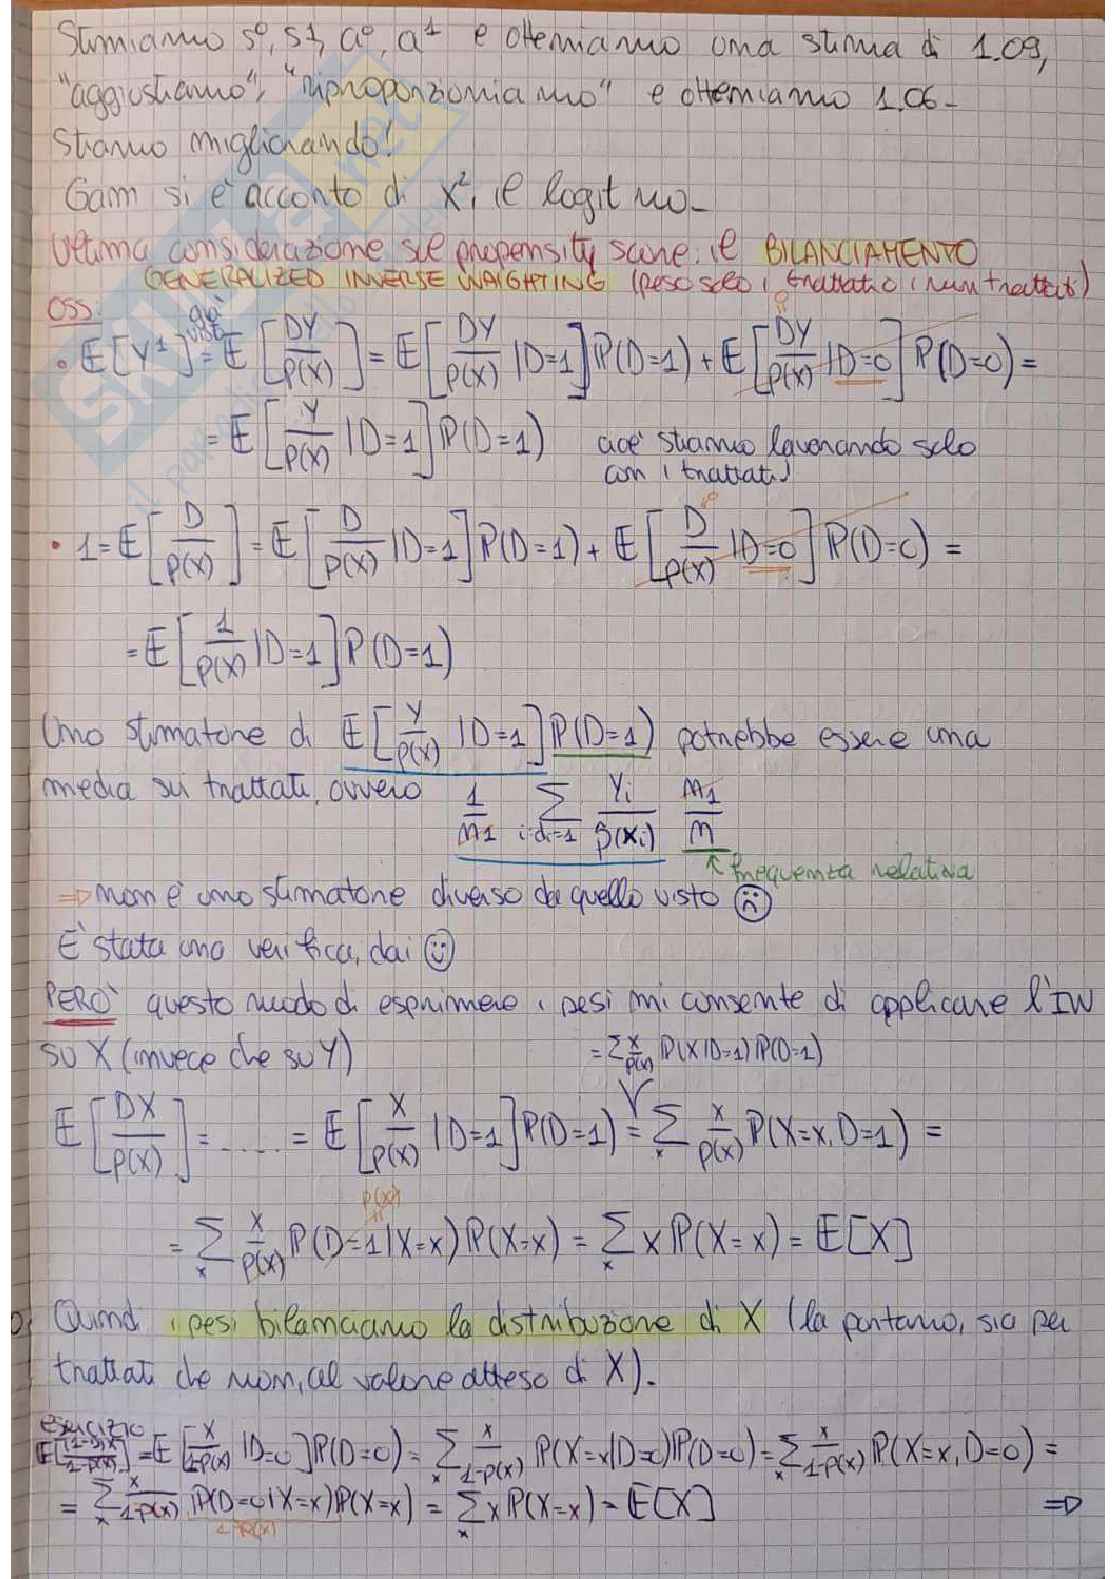 Stimiamo s⁰, s1, a⁰, a¹ e otteniamo una stima di 1.09,
"aggiustiamo", "riproporzioniamo" e otteniamo 1.06-
Stiamo migliorando!
Gam si è accorto di x², il logit no-
Ultima considerazione sul propensity score: il BILANCIAMENTO
GENERALIZED INVERSE WEIGHTING (peso solo i trattati o i non trattati)
OSS:
• E[Y¹] = E[DY/p(X)] = E[DY/p(X) | D=1] P(D=1) + E[DY/p(X) | D=0] P(D=0) =
= E[Y/p(X) | D=1] P(D=1) cioè stiamo lavorando solo
con i trattati!
• 1 = E[D/p(X)] = E[D/p(X) | D=1] P(D=1) + E[D/p(X) | D=0] P(D=0) =
= E[1/p(X) | D=1] P(D=1)
Uno stimatore di E[Y/p(X) | D=1] P(D=1) potrebbe essere una
media sui trattati, ovvero 1/n1 Σ i:di=1 Yi/p̂(xi) n1/n
↑ frequenza relativa
⇒ non è uno stimatore diverso da quello visto ☹
E' stata una verifica, dai ☺
PERO' questo modo di esprimere i pesi mi consente di applicare l'IW
su X (invece che su Y) = Σ x/p(x) P(X|D=1) P(D=1)
E[DX/p(X)] = ..... = E[X/p(X) | D=1] P(D=1) = Σx x/p(x) P(X=x, D=1) =
p(x)
= Σx x/p(x) P(D=1|X=x) P(X=x) = Σx x P(X=x) = E[X]
Quindi i pesi bilanciano la distribuzione di X (la portano, sia per
trattati che non, al valore atteso di X).
esercizio
E[(1-D)X/1-p(X)] = E[X/1-p(X) | D=0] P(D=0) = Σx x/1-p(x) P(X=x|D=0) P(D=0) = Σx x/1-p(x) P(X=x, D=0) =
= Σx x/1-p(x) P(D=0|X=x) P(X=x) = Σx x P(X=x) = E[X] ⇒
1-p(x)